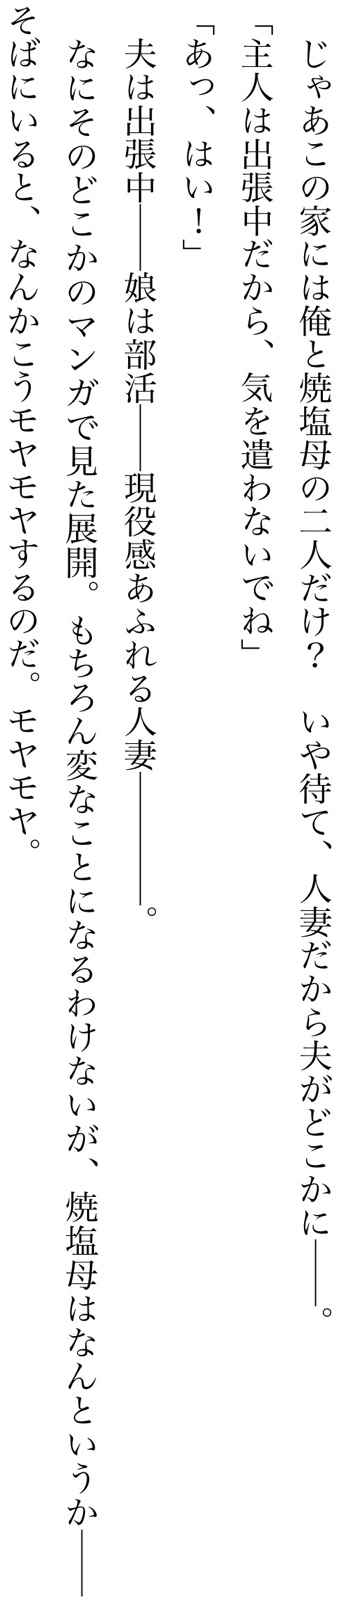 じゃあこの家には俺と焼塩母の二人だけ？　いや待て、人妻だから夫がどこかに――。
「主人は出張中だから、気を遣わないでね」
「あっ、はい！」
　夫は出張中――娘は部活――現役感あふれる人妻――――。
　なにそのどこかのマンガで見た展開。もちろん変なことになるわけないが、焼塩母はなんというか――
そばにいると、なんかこうモヤモヤするのだ。モヤモヤ。